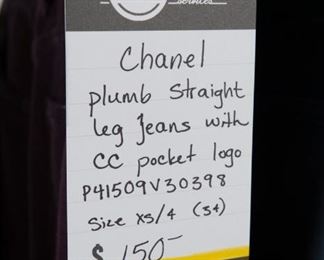 services
Chanel
plumb Straight
leg Jeans with
CC pocket logo
P41509V30398
Size XS/4 (34)
$150-